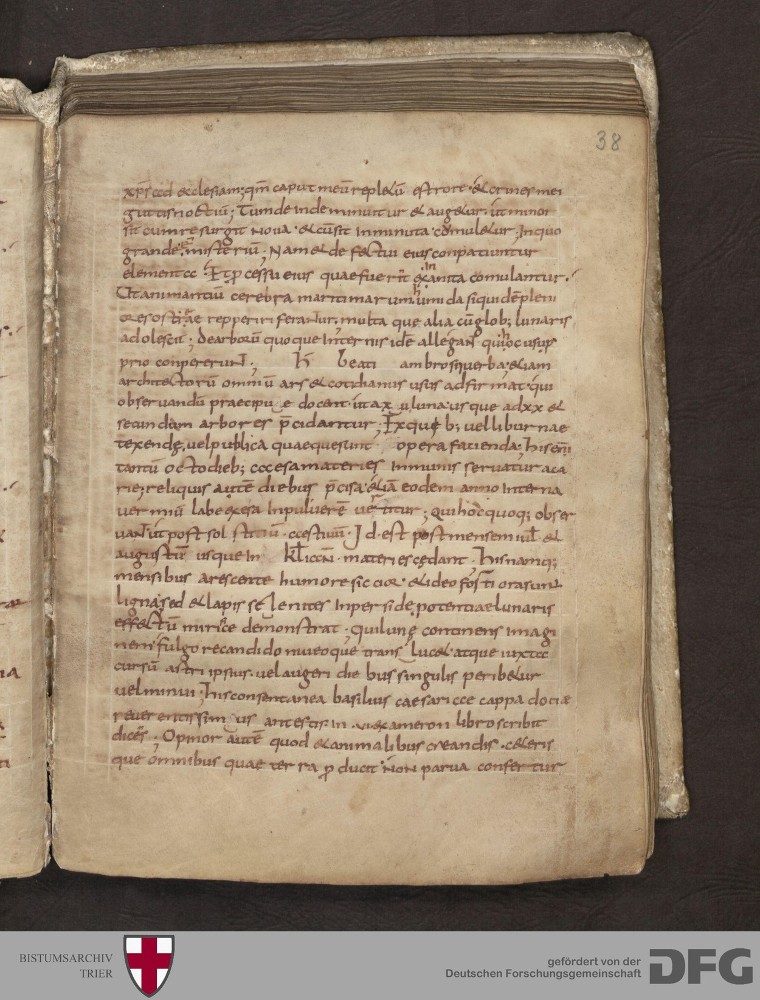 38
xp̄s ad ecclesiam; qm̄ caput meū repletū est rore · et crines mei
guttis noctiū; Tum deinde minuitur et augetur · ut minor
sit cum resurgit nova · et cū sit inminuta comuletur; In quo
grande misteriū; Nam et defectui eius conpatiuntur
elementa · Et p̄cessu eius quae fuerint exanita comulantur ·
Ut animantiū cerebra maritimarum humida siquidē pleni
ores ostrae repperiri ferantur, multa que alia cū globo lunaris
adolescit; de arborū quoque internis idē allegant qui hoc usu p̄
prio conpererunt; beati ambrosii verba · etiam
architectorū omniū ars et cotidianus usus adfirmat · qui
observandū praecipue docent · ut a xv luna usque ad xx et
secundam arbores p̄cidantur; Ex quib; vel liburnae
texendę, vel publica quaeque sunt opera facienda; his enī
tantū octo dieb; caesa materies inmunis servatur a ca
rie; reliquis autē diebus p̄cisa · etiā eodem anno interna
vermiū labe exesa in pulverē vertitur; qui hoc quoq; obser
vant ut post solstitiū aestivū · Id · est post mensem iul̄ et
augustū usque in kl̄ ian̄ · materies cędant · his namq;
mensibus arescente humore sicciora · et ideo fortiora sunt
ligna; sed et lapis selenites in perside, potentiae lunaris
effectū mirice demonstrat · qui lunę continens imagi
nem · fulgore candido niveoque translucet · atque iuxta
cursū astri ipsius · vel augeri diebus singulis peribetur
vel minui; his consentanea basilius caesariae cappadociae
reverentissimus antestis · in · exameron libro scribit
dicēs; Opinor autē quod et animalibus creandis · caeteris
que omnibus quae terra p̄ducit · non parva confertur
BISTUMSARCHIV
TRIER
gefördert von der
Deutschen Forschungsgemeinschaft
DFG